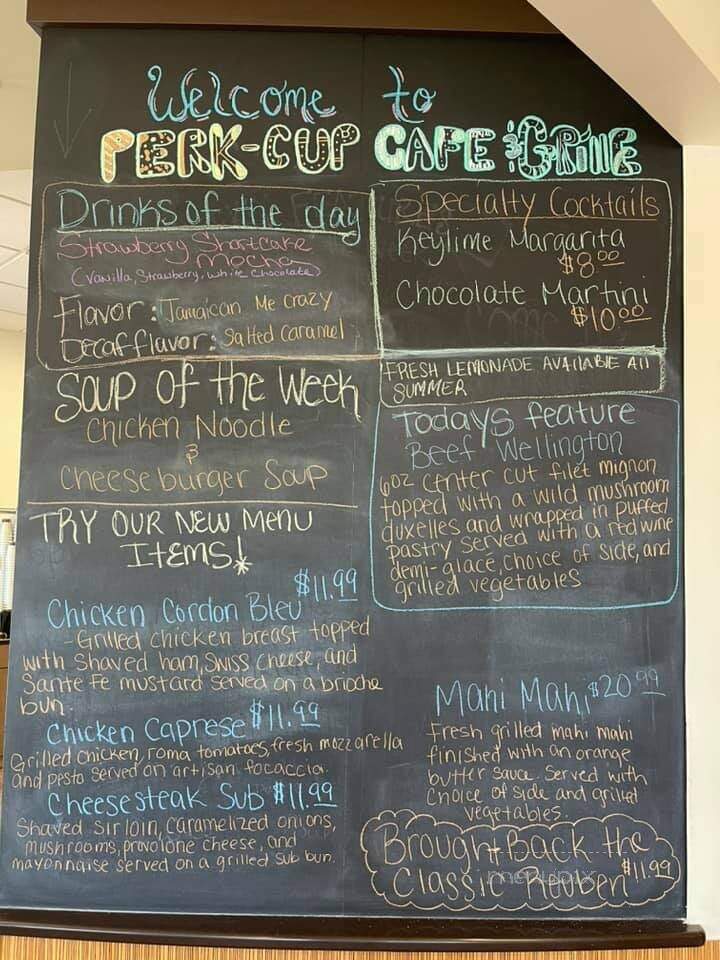 Welcome to
PERK-CUP CAFE & GRILLE
Drinks of the day
Strawberry Shortcake
Mocha
(Vanilla, Strawberry, White Chocolate)
Flavor: Jamaican Me Crazy
Decaf flavor: Salted Caramel
Specialty Cocktails
Keylime Margarita
$8.00
Chocolate Martini
$10.00
FRESH LEMONADE AVAILABLE All
SUMMER
Soup of the Week
Chicken Noodle
&
Cheeseburger Soup
Todays feature
Beef Wellington
6oz center cut filet mignon
topped with a wild mushroom
duxelles and wrapped in puffed
pastry served with a red wine
demi-glace, choice of side, and
grilled vegetables
TRY OUR NEW MENU
ITEMS!
Chicken Cordon Bleu $11.99
- Grilled chicken breast topped
with Shaved ham, Swiss cheese, and
Sante Fe mustard served on a brioche
bun.
Chicken Caprese $11.99
Grilled chicken, roma tomatoes, fresh mozzarella
and pesto served on artisan focaccia.
Cheesesteak Sub $11.99
Shaved Sirloin, Caramelized onions,
mushrooms, provolone cheese, and
mayonnaise served on a grilled sub bun.
Mahi Mahi $20.99
Fresh grilled mahi mahi
finished with an orange
butter sauce. Served with
choice of side and grilled
vegetables.
Brought Back the
Classic Reuben $11.99
menupix